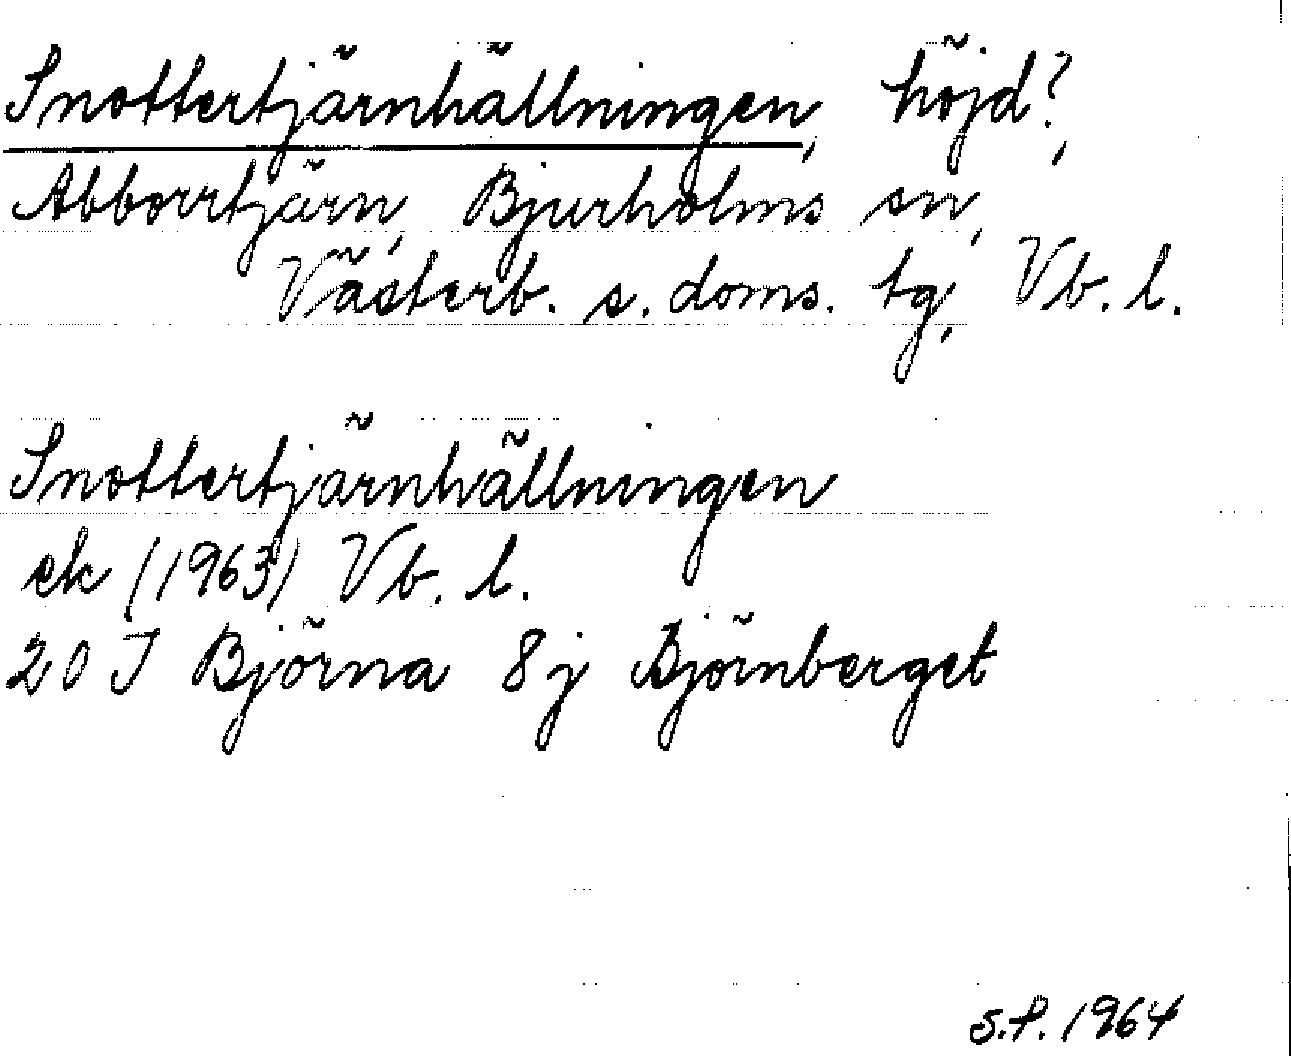 Snottertjärnhällningen, höjd?,
Abborrtjärn, Bjurholms sn,
Västerb. s. doms. tg, Vb. l.
Snottertjärnhällningen
ek (1963) Vb. l.
20 J Björna 8j Björnberget
S.P. 1964